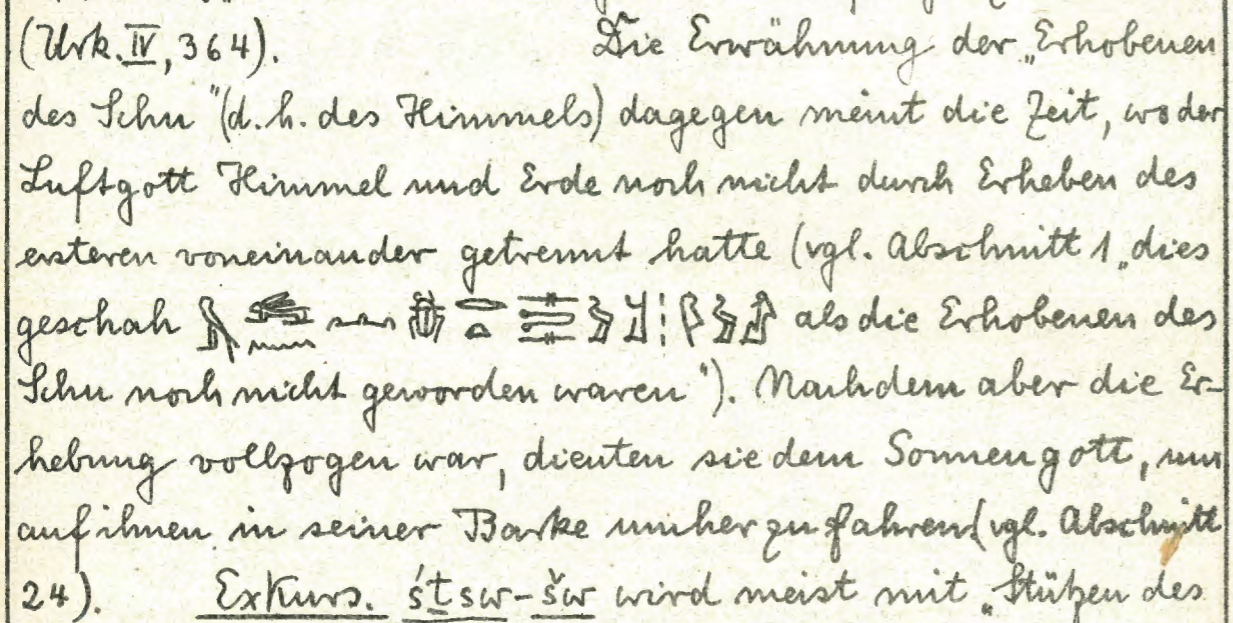 (Urk. IV, 364). Die Erwähnung der „Erhobenen
des Schu" (d.h. des Himmels) dagegen meint die Zeit, wo der
Luftgott Himmel und Erde noch nicht durch Erheben des
ersteren voneinander getrennt hatte (vgl. Abschnitt 1 „dies
geschah als die Erhobenen des
Schu noch nicht geworden waren"). Nachdem aber die Er-
hebung vollzogen war, dienten sie dem Sonnengott, um
auf ihnen in seiner Barke umher zu fahren (vgl. Abschnitt
24). Exkurs. śṯsw-šw wird meist mit „Stützen des